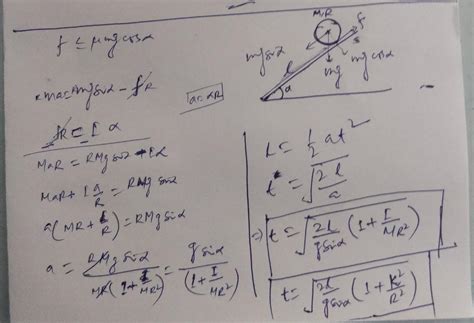 f ≤ μmgcosα
ma = mgsinα - fR
a = αR
fR = I α
MaR = RMgsinα - Iα
MaR + I a/R = RMgsinα
a(MR + I/R) = RMgsinα
a = RMgsinα / MR(1 + I/MR²) = gsinα / (1 + I/MR²)
M,R
f
mgsinα
l
mgcosα
mg
α
L = 1/2 at²
t = √(2l/a)
⇒ t = √(2l/gsinα (1 + I/MR²))
t = √(2l/gsinα (1 + k²/R²))